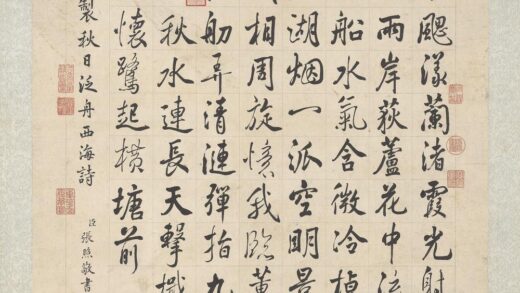 颸漾蘭渚霞光射
兩岸荻蘆花中流
船水氣含微冷棹
湖烟一泒空明景
相周旋憶我臨董
舠弄清漣彈指九
秋水連長天擊
懷鷺起橫塘前
製秋日泛舟西海詩
臣張照敬書